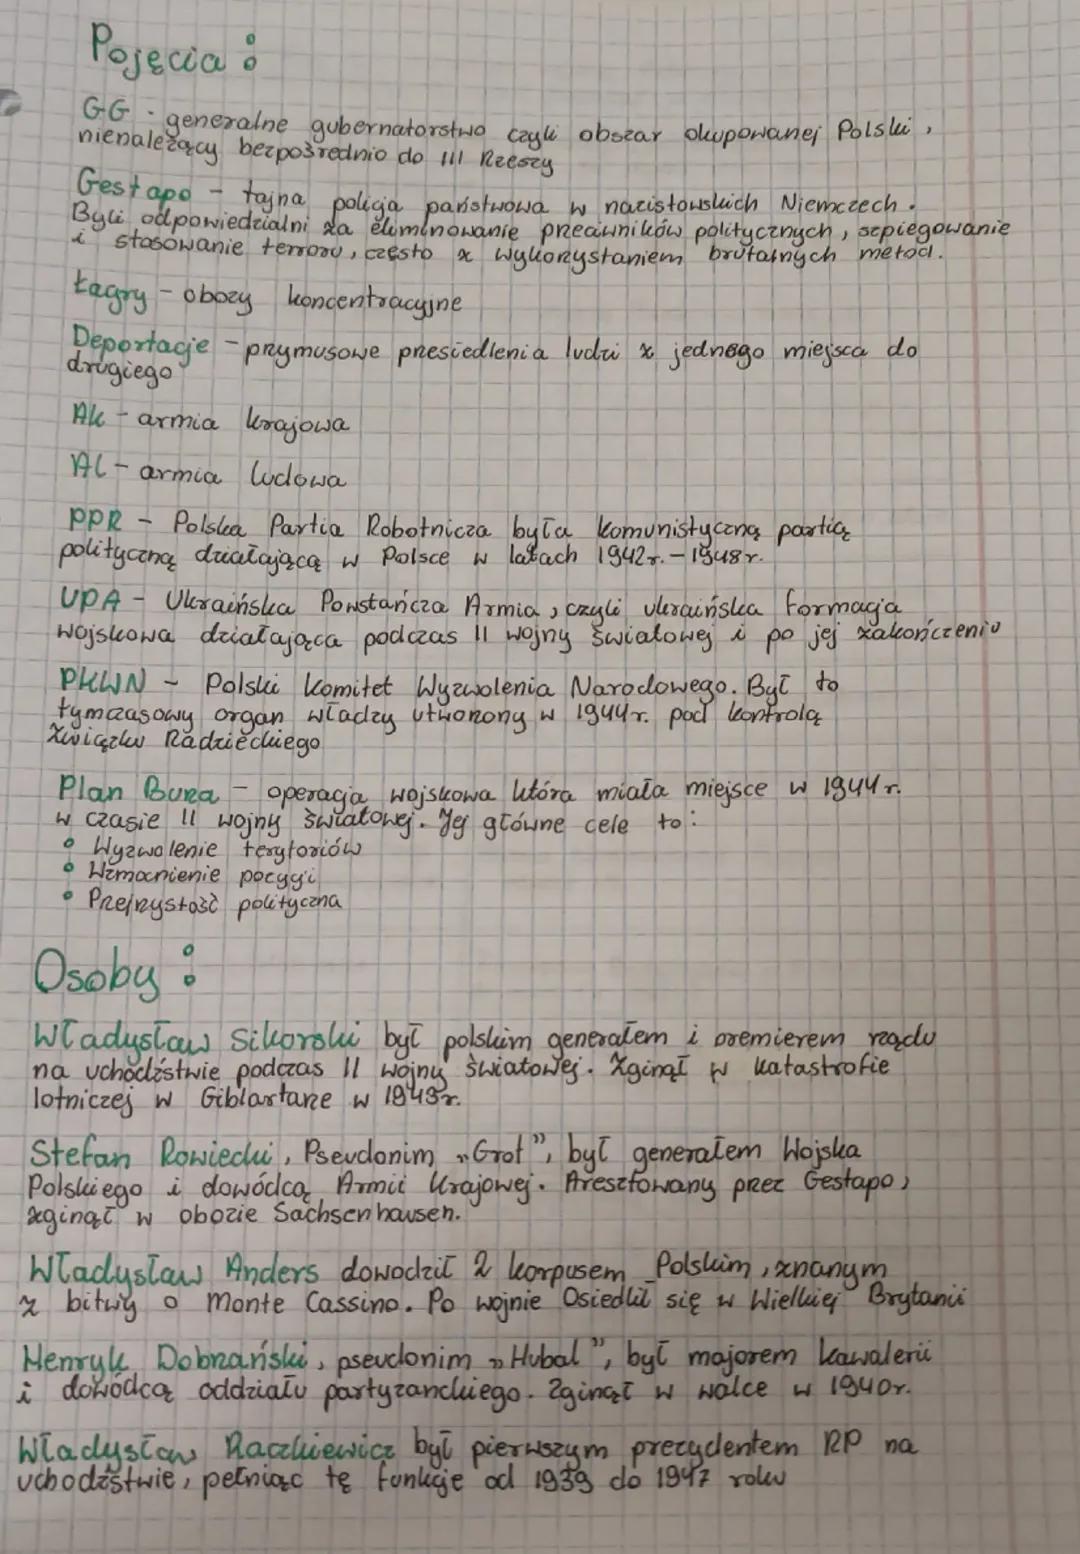 Pojęcia :
GG - generalne gubernatorstwo czyli obszar okupowanej Polski,
nienależący bezpośrednio do III Rzeszy
Gestapo - tajna policja państwowa w nazistowskich Niemczech.
Byli odpowiedzialni za eliminowanie przeciwników politycznych, szpiegowanie
i stosowanie terroru, często z wykorzystaniem brutalnych metod.
Łagry - obozy koncentracyjne
Deportacje - przymusowe przesiedlenia ludzi z jednego miejsca do
drugiego
AK - armia krajowa
AL - armia ludowa
PPR - Polska Partia Robotnicza była komunistyczną partią
polityczną działającą w Polsce w latach 1942r. - 1948r.
UPA - Ukraińska Powstańcza Armia, czyli ukraińska formacja
wojskowa działająca podczas II wojny światowej i po jej zakończeniu
PKWN - Polski Komitet Wyzwolenia Narodowego. Był to
tymczasowy organ władzy utworzony w 1944r. pod kontrolą
Związku Radzieckiego
Plan Burza - operacja wojskowa która miała miejsce w 1944r.
w czasie II wojny światowej. Jej główne cele to :
• Wyzwolenie terytoriów
• Wzmocnienie pozycji
• Przejrzystość polityczna
Osoby :
Władysław Sikorski był polskim generałem i premierem rządu
na uchodźstwie podczas II wojny światowej. Zginął w katastrofie
lotniczej w Giblartarze w 1943r.
Stefan Rowiecki, Pseudonim „Grot”, był generałem Wojska
Polskiego i dowódcą Armii Krajowej. Aresztowany przez Gestapo,
zginął w obozie Sachsenhausen.
Władysław Anders dowodził 2 korpusem Polskim, znanym
z bitwy o Monte Cassino. Po wojnie Osiedlił się w Wielkiej Brytanii
Henryk Dobrzański, pseudonim „Hubal”, był majorem kawalerii
i dowódcą oddziału partyzanckiego. Zginął w walce w 1940r.
Władysław Raczkiewicz był pierwszym prezydentem RP na
uchodźstwie, pełniąc tę funkcje od 1939 do 1947 roku